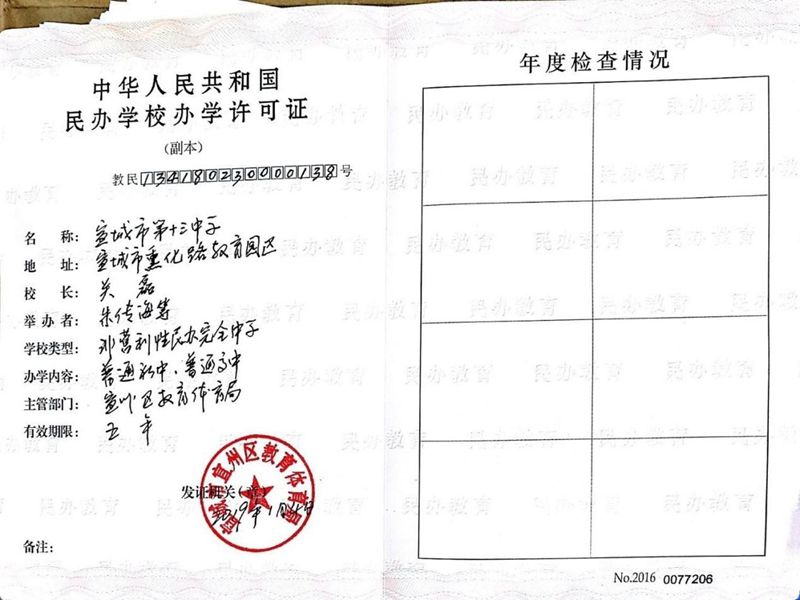 中华人民共和国
民办学校办学许可证
(副本)
教民134180230000138号
名 称: 宣城市第十三中学
地 址: 宣城市薰化路教育园区
校 长: 关磊
举 办 者: 朱传海等
学校类型: 非营利性民办完全中学
办学内容: 普通初中、普通高中
主管部门: 宣州区教育体育局
有效期限: 五年
宣城市宣州区教育体育局
发证机关(章)
2019年1月
备注:
年度检查情况
No.2016 0077206